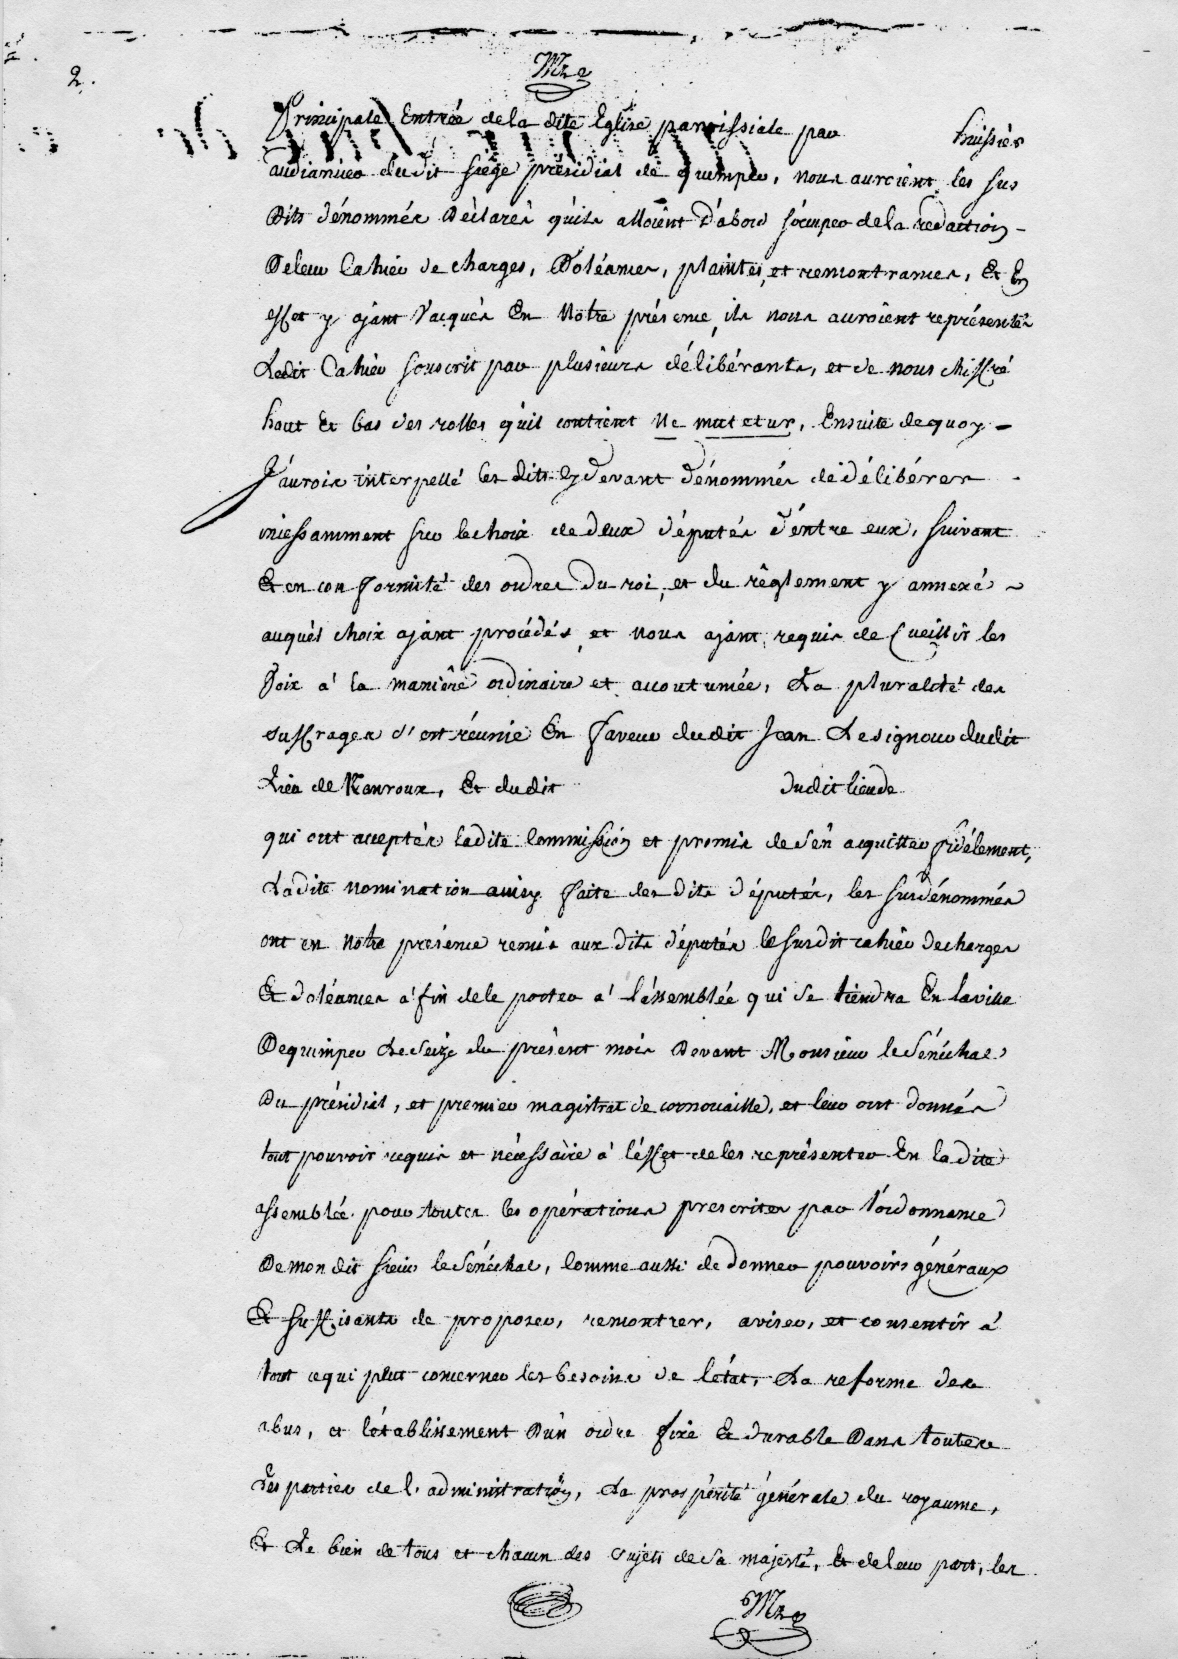 2.
Principale Entrée de la dite Eglise paroissiale par huissier
audiancier du dit siège présidial de quimper, nous auroient les sus
Dits dénommés Déclarés qu'ils alloient d'abord s'ocuper de la redaction
De leur Cahier de charges, Doléances, plaintes, et remontrances, Et En
effet y ajant Vacqués En Notre présence, ils nous auroient représentés
Ledit Cahier souscrit par plusieurs délibérants, et de nous chiffré
haut Et bas des rolles qu'il contient Ne matetur, Ensuite de quoy
J'aurois interpellé les dits cy devant dénommés de délibérer
incessamment sur le choix de deux députés d'entre eux, suivant
Et en conformité des ordres du roi, et du règlement y annexé
auquel choix ajant procédés, et nous ajant requis de Cueillir les
Voix a la manière ordinaire et accoutumée, La pluralité des
suffrages s'est réunie En faveur du dit Jean Le signour du dit
Lieu de Kanroux, Et du dit du dit lieu de
qui ont acceptés la dite Commission et promis de s'en acquitter fidélement,
La dite Nomination ainsy faite des dits députés, les susdénommés
ont en Notre présence remis aux dits députés le susdit cahier de charges
Et doléances afin de le porter a l'assemblée qui se tiendra En la ville
De quimper Le Seize du présent mois Devant Monsieur le Sénéchal
Du présidial, et premier magistrat de cornouaille, et leur ont donnés
tout pouvoir requis et nécessaire a l'éffet de les représenter En la dite
assemblée pour toutes les opérations prescrites par l'ordonnance
De mon dit sieur le Sénéchal, Comme aussi de donner pouvoirs généraux
Et suffisants de proposer, remontrer, aviser, et consentir a
tout ce qui peut concerner les besoins de l'état, La reforme des
abus, et l'établissement D'un ordre fixe Et durable Dans toutes
Les parties de l'administration, La prospérité générale du royaume,
Et Le bien de tous et chacun des Sujets de Sa majesté, Et de leur part, les